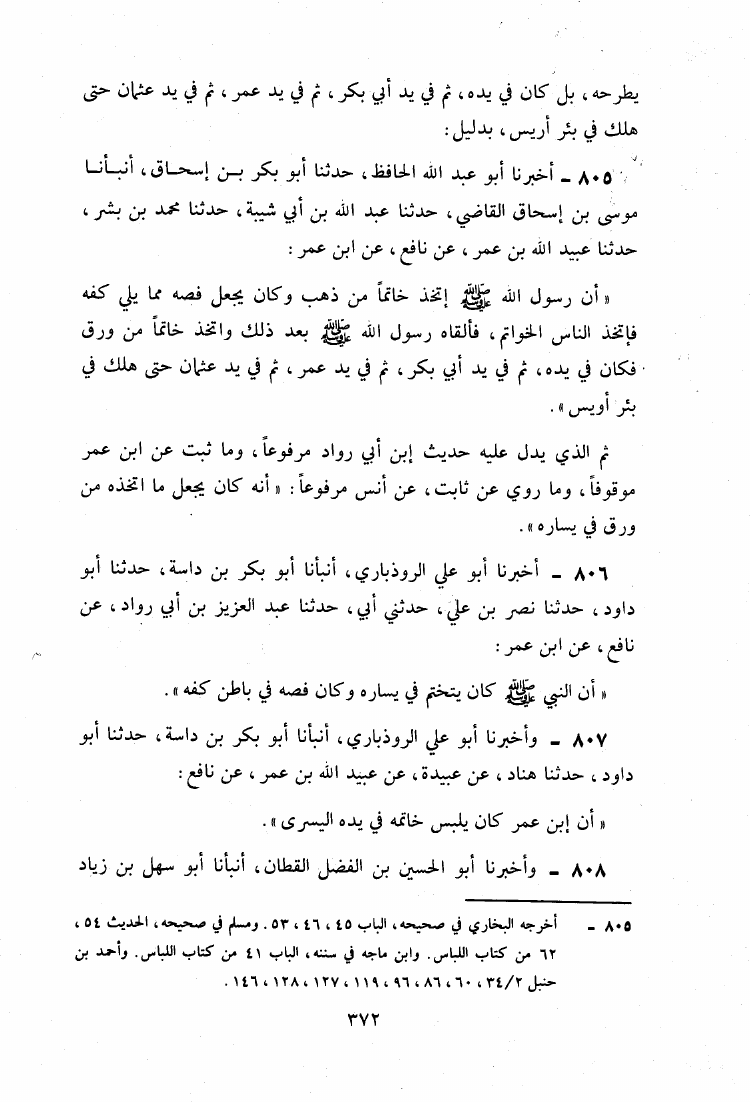 يطرحه، بل كان في يده، ثم في يد أبي بكر، ثم في يد عمر، ثم في يد عثمان حتى
هلك في بئر أريس، بدليل:
٨٠٥ ـ أخبرنا أبو عبد الله الحافظ، حدثنا أبو بكر بـن إسحـاق، أنبـأنـا
موسى بن إسحاق القاضي، حدثنا عبد الله بن أبي شيبة، حدثنا محمد بن بشر،
حدثنا عبيد الله بن عمر، عن نافع، عن ابن عمر:
«أن رسول الله ﷺ إتخذ خاتماً من ذهب وكان يجعل فصه مما يلي كفه
فإتخذ الناس الخواتم، فألقاه رسول الله ﷺ بعد ذلك واتخذ خاتماً من ورق
فكان في يده، ثم في يد أبي بكر، ثم في يد عمر، ثم في يد عثمان حتى هلك في
بئر أويس».
ثم الذي يدل عليه حديث إبن أبي رواد مرفوعاً، وما ثبت عن ابن عمر
موقوفاً، وما روي عن ثابت، عن أنس مرفوعاً: «أنه كان يجعل ما اتخذه من
ورق في يساره».
٨٠٦ ـ أخبرنا أبو علي الروذباري، أنبأنا أبو بكر بن داسة، حدثنا أبو
داود، حدثنا نصر بن علي، حدثني أبي، حدثنا عبد العزيز بن أبي رواد، عن
نافع، عن ابن عمر:
«أن النبي ﷺ كان يتختم في يساره وكان فصه في باطن كفه».
٨٠٧ ـ وأخبرنا أبو علي الروذباري، أنبأنا أبو بكر بن داسة، حدثنا أبو
داود، حدثنا هناد، عن عبيدة، عن عبيد الله بن عمر، عن نافع:
«أن إبن عمر كان يلبس خاتمه في يده اليسرى».
٨٠٨ ـ وأخبرنا أبو الحسين بن الفضل القطان، أنبأنا أبو سهل بن زياد
٨٠٥ ـ أخرجه البخاري في صحيحه، الباب ٤٥، ٤٦، ٥٣. ومسلم في صحيحه، الحديث ٥٤،
٦٢ من كتاب اللباس. وابن ماجه في سننه، الباب ٤١ من كتاب اللباس. وأحمد بن
حنبل ٣٤/٢، ٦٠، ٨٦، ٩٦، ١١٩، ١٢٧، ١٢٨، ١٤٦.
٣٧٢